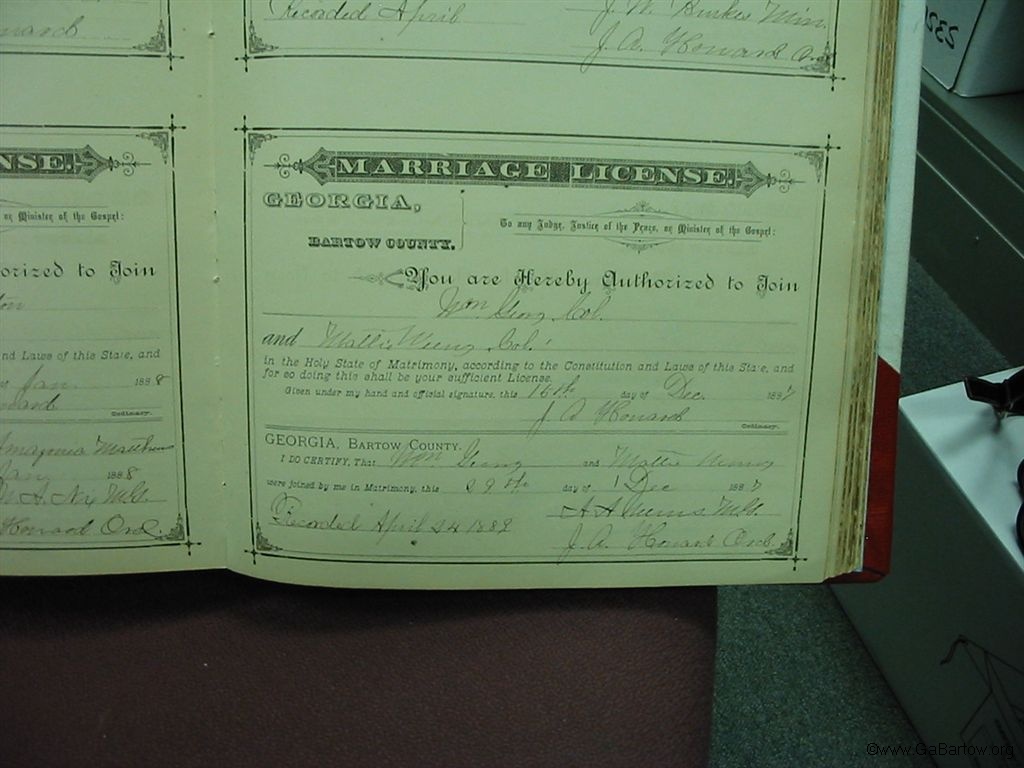 onard
Recorded April
J. W. Burkes Min.
J. A. Howard
NSE.
or Minister of the Gospel:
orized to Join
nd Laws of this State, and
Jan. 1888
Ordinary.
Matthews
Jany 1888
Howard Ord.
MARRIAGE LICENSE.
GEORGIA,
BARTOW COUNTY.
To any Judge, Justice of the Peace, or Minister of the Gospel:
You are Hereby Authorized to Join
Wm Col.
and Mattie Col.
in the Holy State of Matrimony, according to the Constitution and Laws of this State, and
for so doing this shall be your sufficient License.
Given under my hand and official signature, this 15th day of Dec. 1887
J. A. Howard
Ordinary.
GEORGIA, Bartow County.
I DO CERTIFY, That Wm and Mattie
were joined by me in Matrimony, this 29th day of Dec 1887
Recorded April 24 1889
J. A. Howard Ord.
232
©www.GaBartow.org